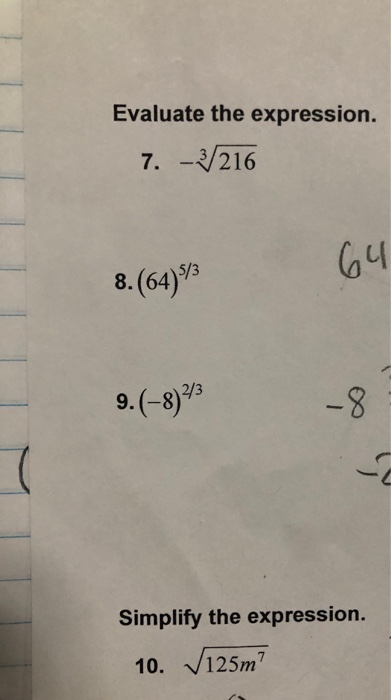 Evaluate the expression.
7. -∛216
8. (64)^5/3
64
9. (-8)^2/3
-8
-2
Simplify the expression.
10. √125m^7